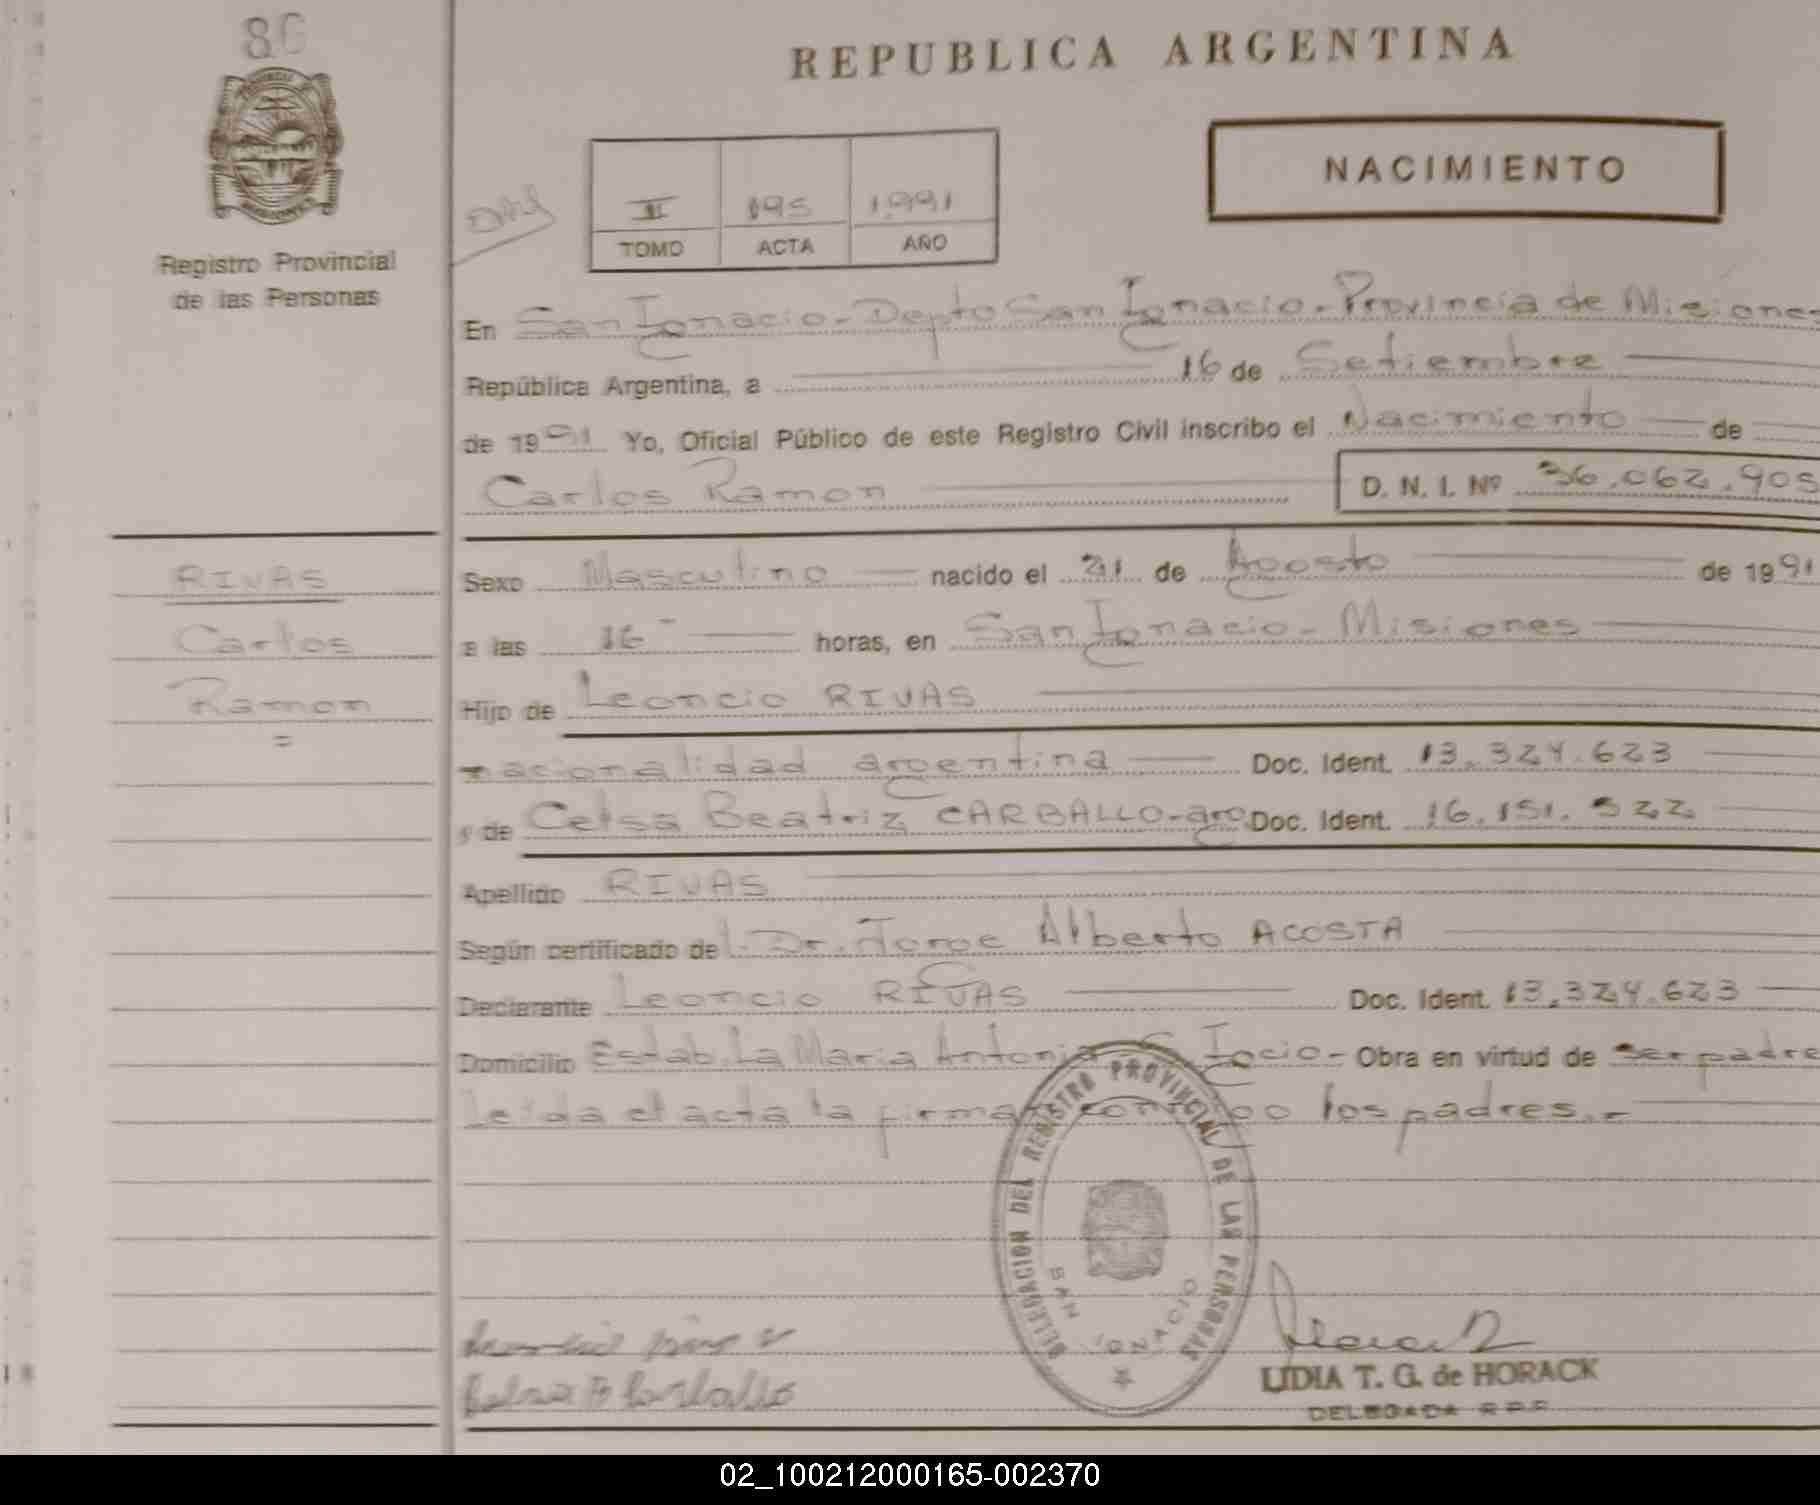 86
REPUBLICA ARGENTINA
NACIMIENTO
II 195 1.991
TOMO ACTA AÑO
Registro Provincial
de las Personas
En San Ignacio - Depto San Ignacio - Provincia de Misiones
República Argentina, a 16 de Setiembre
de 1991 Yo, Oficial Público de este Registro Civil inscribo el Nacimiento de
Carlos Ramon D. N. I. Nº 36.062.905
RIVAS
Carlos
Ramon
=
Sexo Masculino nacido el 21 de Agosto de 1991
a las 16 horas, en San Ignacio - Misiones
Hijo de Leoncio RIVAS
nacionalidad argentina Doc. Ident. 13.324.623
y de Celsa Beatriz CARBALLO - arg. Doc. Ident. 16.151.522
Apellido RIVAS
Según certificado del Dr. Jorge Alberto ACOSTA
Declarante Leoncio RIVAS Doc. Ident. 13.324.623
Domicilio Estab. La Maria Antonia S. Igcio - Obra en virtud de ser padre
leida el acta la firman conmigo los padres.-
DELEGACION DEL REGISTRO PROVINCIAL DE LAS PERSONAS
SAN IGNACIO
Celsa B Carballo
LIDIA T. G. de HORACK
DELEGADA R.P.P.
02_100212000165-002370